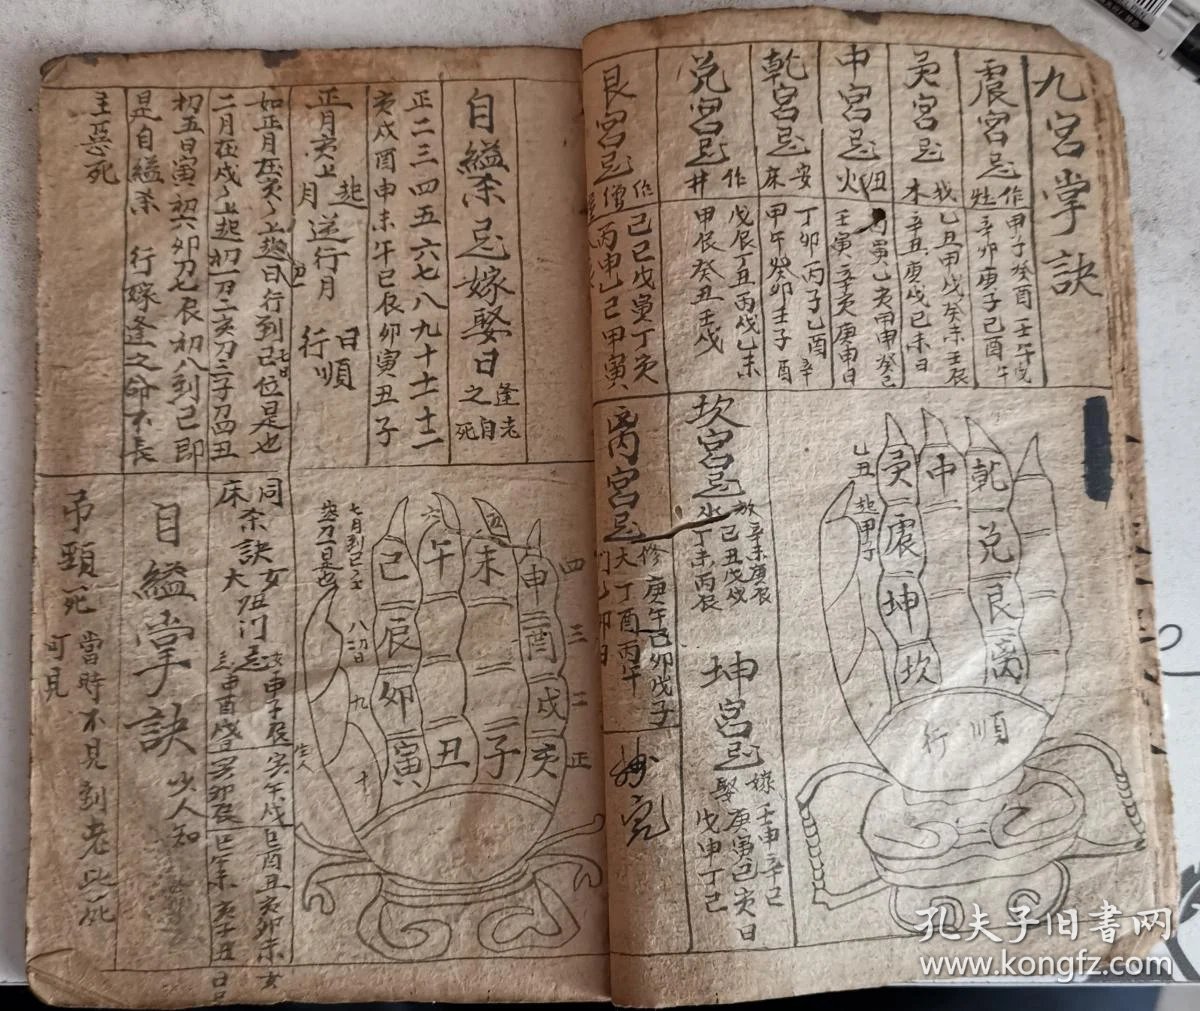 九宮掌訣
震宮忌 作灶
甲子癸酉壬午戌
辛卯庚子己酉午
巽宮忌 我木
乙丑甲戌癸未壬辰
辛丑庚戌己未日
中宮忌火
丙寅乙亥甲申癸巳
壬寅辛亥庚申日
乾宮忌 安床
丁卯丙子乙酉辛
甲午癸卯壬子酉
兌宮忌 作井
戊辰丁丑丙戌乙未
甲辰癸丑壬戌
艮宮忌 作僧
己巳戊寅丁亥
丙申乙巳甲寅
坎宮忌水
放辛未庚辰
己丑戊戌
丁未丙辰
坤宮忌 嫁娶
壬申辛巳
庚寅己亥日
戊申丁巳
離宮忌 修大門
庚午己卯戊子
丁酉丙午
乙卯日
乙丑 起甲子
巽 中 乾
震 兌
坤 艮
坎 离
順行
自縊杀忌嫁娶日 逢之老自死
正二三四五六七八九十十一十二
亥戌酉申未午巳辰卯寅丑子
正月亥上起月逆行月 日順行
如正月在亥上起日行到己位是也
二月在戌上起初一刀二亥刀三子刀四丑
初五日寅初六卯刀七辰初八到己即
是自縊杀 行嫁逢之命不長
主惡死
同床杀訣 女大忌门
自縊掌訣 少人知
吊頸死 當時不見到老此死
可見
七月到己
八初日 九 十
六 五 四 三 二 正
己 午 未 申
辰 酉
卯 戌
寅 丑 子 亥
孔夫子旧书网
www.kongfz.com